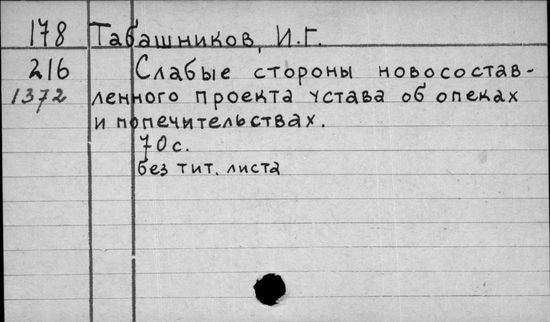 178 Табашников, И.Г.
216 Слабые стороны новосостав-
1372 ленного проекта устава об опеках
и попечительствах.
70 с.
без тит. листа